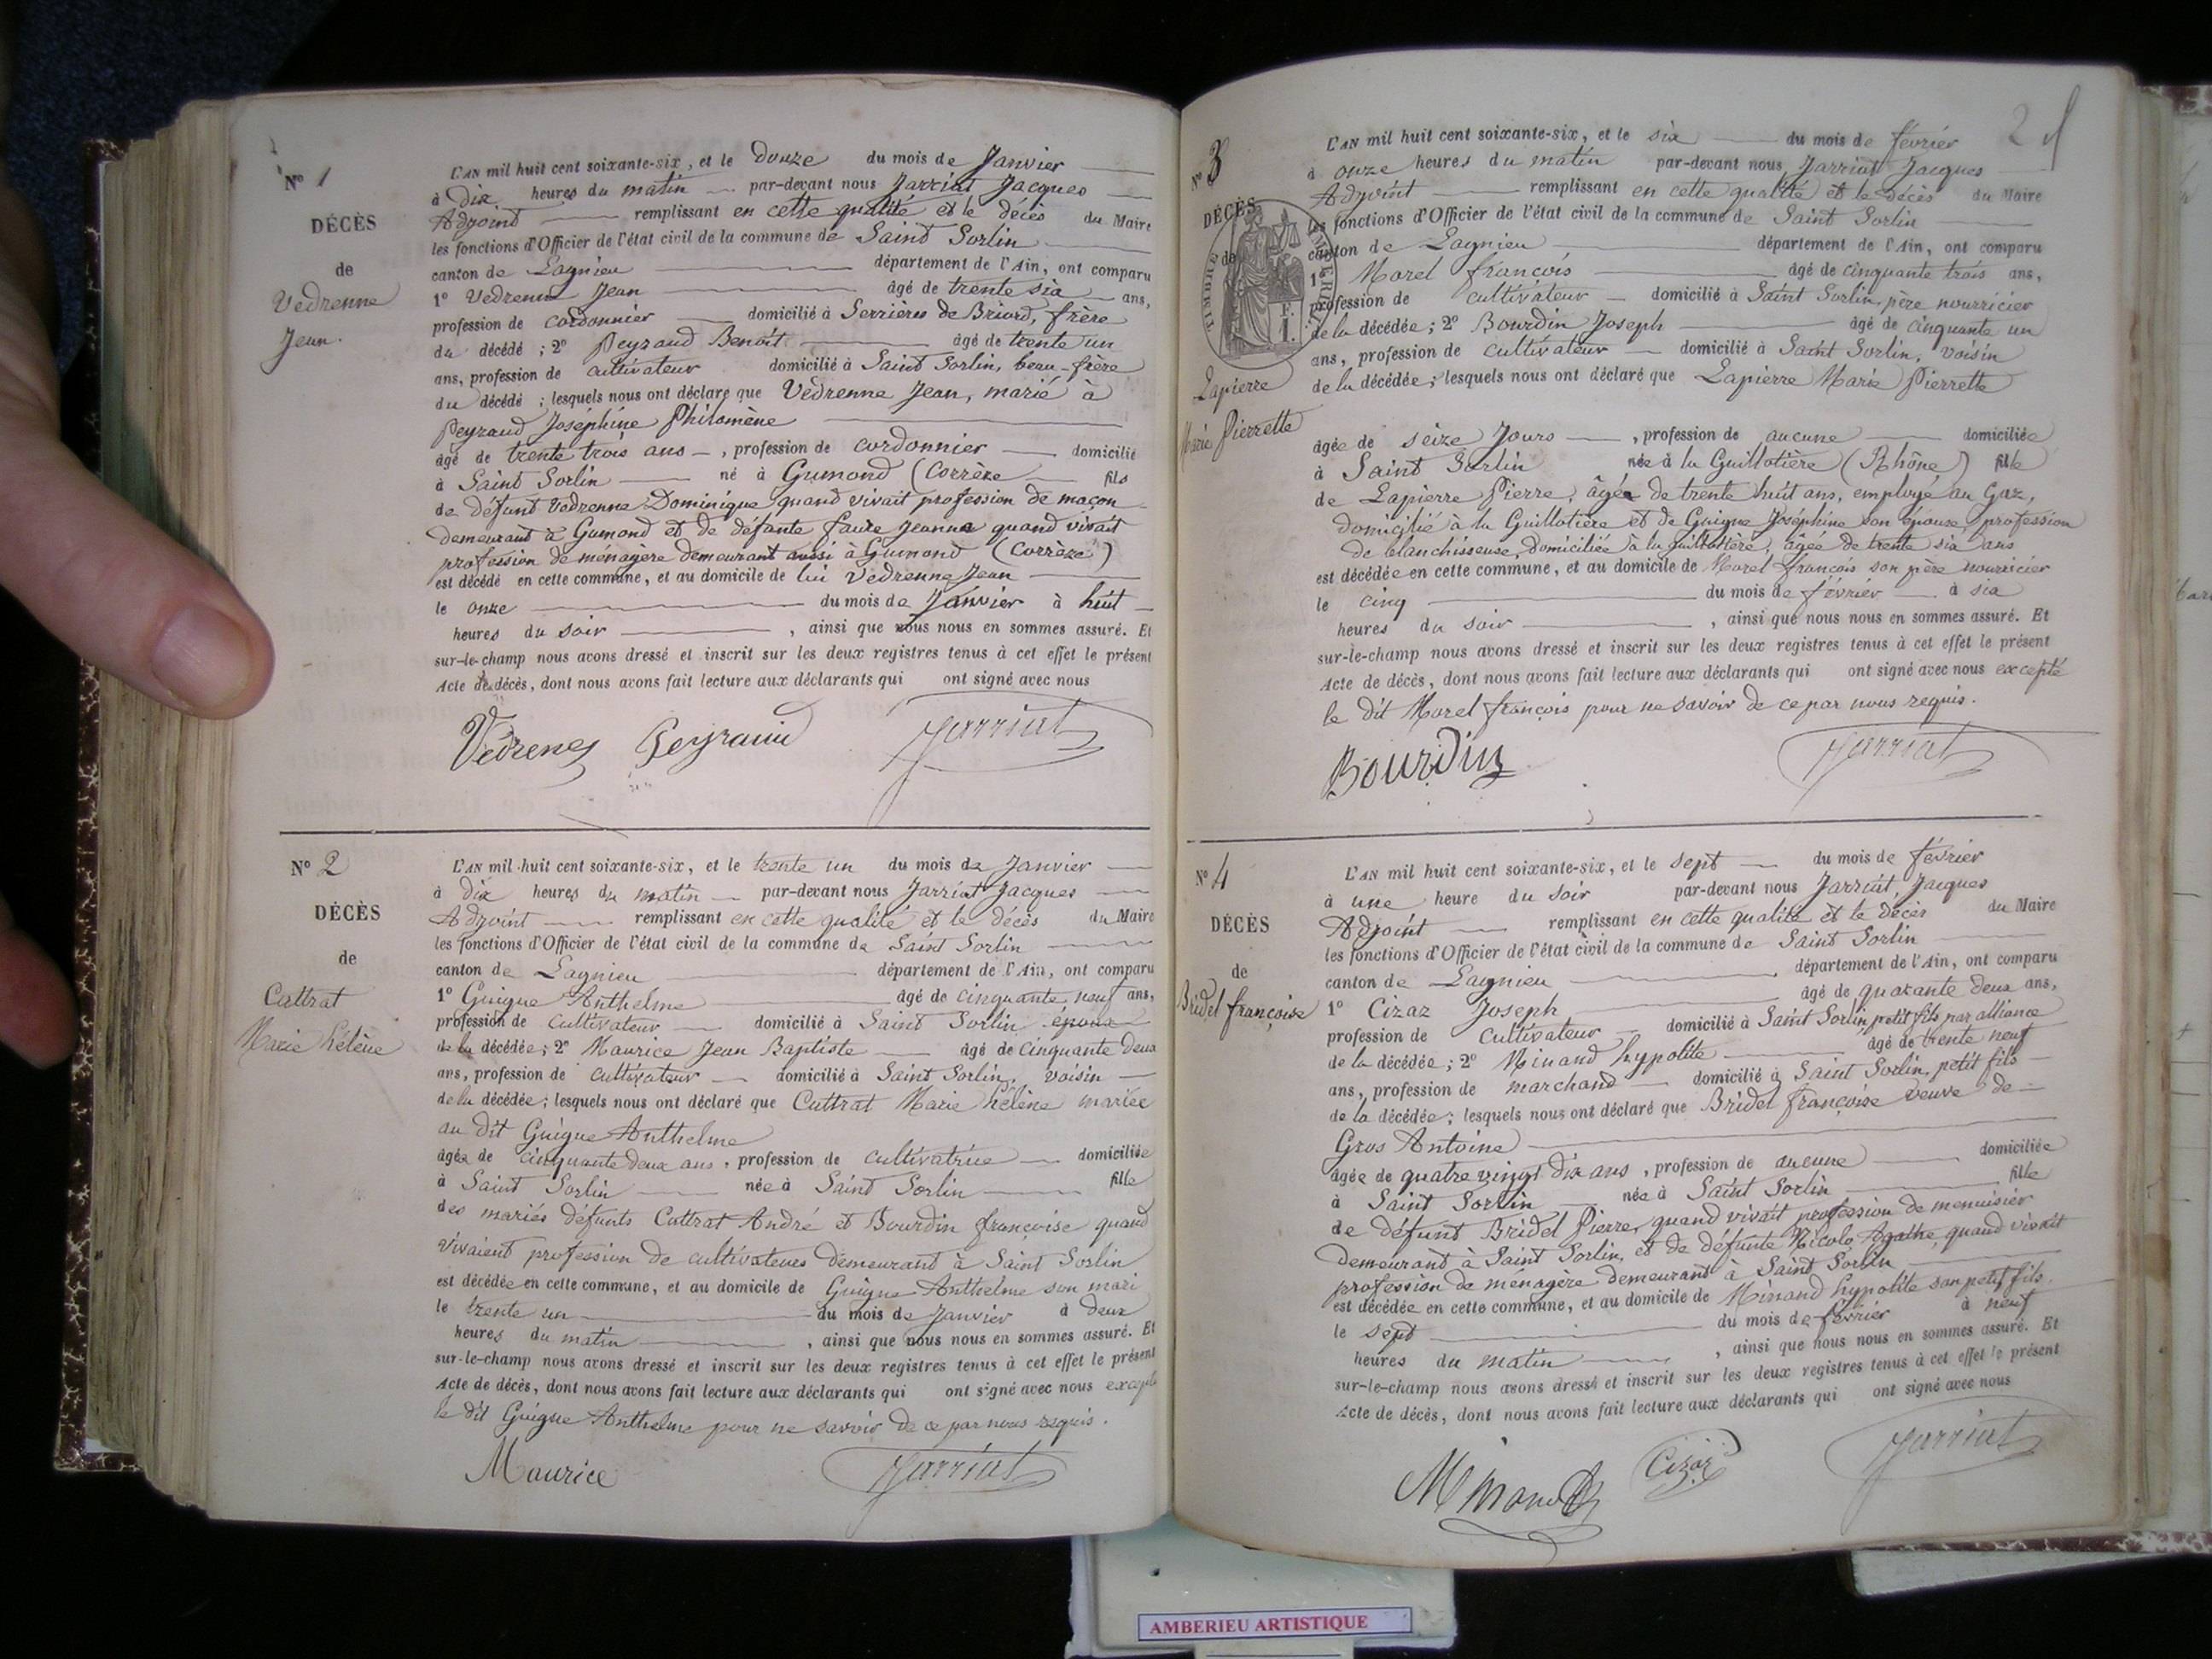 N° 1
DÉCÈS
de
Vedrenne
Jean.
L'AN mil huit cent soixante-six, et le douze du mois de Janvier
à dix heures du matin par-devant nous Jarriat Jacques
Adjoint remplissant en cette qualité et le décès du Maire
les fonctions d'Officier de l'état civil de la commune de Saint Sorlin
canton de Lagnieu département de l'Ain, ont comparu
1° Vedrenne Jean âgé de trente six ans,
profession de cordonnier domicilié à Serrières de Briord, frère
du décédé ; 2° Peyraud Benoit âgé de trente un
ans, profession de cultivateur domicilié à Saint Sorlin, beau-frère
du décédé ; lesquels nous ont déclaré que Vedrenne Jean, marié à
Peyraud Joséphine Philomène
âgé de trente trois ans, profession de cordonnier domicilié
à Saint Sorlin né à Gumond (Corrèze fils
de défunt Vedrenne Dominique quand vivait profession de maçon
demeurant à Gumond et de défante faure Jeanne quand vivait
profession de ménagère demeurant aussi à Gumond (Corrèze)
est décédé en cette commune, et au domicile de lui Vedrenne Jean
le onze du mois de Janvier à huit
heures du soir, ainsi que nous nous en sommes assuré. Et
sur-le-champ nous avons dressé et inscrit sur les deux registres tenus à cet effet le présent
Acte de décès, dont nous avons fait lecture aux déclarants qui ont signé avec nous
Vedrenes Peyraud Jarriat
N° 2
DÉCÈS
de
Cattrat
Marie hélène
L'AN mil huit cent soixante-six, et le trente un du mois de Janvier
à dix heures du matin par-devant nous Jarriat Jacques
Adjoint remplissant en cette qualité et le décès du Maire
les fonctions d'Officier de l'état civil de la commune de Saint Sorlin
canton de Lagnieu département de l'Ain, ont comparu
1° Guigue Anthelme âgé de cinquante neuf ans,
profession de cultivateur domicilié à Saint Sorlin époux
de la décédée ; 2° Maurice Jean Baptiste âgé de cinquante deux
ans, profession de cultivateur domicilié à Saint Sorlin, voisin
de la décédée ; lesquels nous ont déclaré que Cuttrat Marie hélène mariée
au dit Guigue Anthelme
âgée de cinquante deux ans, profession de cultivatrice domiciliée
à Saint Sorlin née à Saint Sorlin fille
des mariés défunts Cuttrat André et Bourdin françoise quand
vivaient profession de cultivateurs demeurant à Saint Sorlin
est décédée en cette commune, et au domicile de Guigue Anthelme son mari
le trente un du mois de Janvier à deux
heures du matin, ainsi que nous nous en sommes assuré. Et
sur-le-champ nous avons dressé et inscrit sur les deux registres tenus à cet effet le présent
Acte de décès, dont nous avons fait lecture aux déclarants qui ont signé avec nous excepté
le dit Guigue Anthelme pour ne savoir de ce par nous requis.
Maurice Jarriat
2
N° 3
DÉCÈS
de
Lapierre
Marie Pierrette
TIMBRE IMPÉRIAL
L'AN mil huit cent soixante-six, et le six du mois de février
à onze heures du matin par-devant nous Jarriat Jacques
Adjoint remplissant en cette qualité et le décès du Maire
les fonctions d'Officier de l'état civil de la commune de Saint Sorlin
canton de Lagnieu département de l'Ain, ont comparu
1° Morel françois âgé de cinquante trois ans,
profession de cultivateur domicilié à Saint Sorlin, père nourricier
de la décédée ; 2° Bourdin Joseph âgé de cinquante un
ans, profession de cultivateur domicilié à Saint Sorlin, voisin
de la décédée ; lesquels nous ont déclaré que Lapierre Marie Pierrette
âgée de seize Jours, profession de aucune domiciliée
à Saint Sorlin née à la Guillotière (Rhône) fille
de Lapierre Pierre, âgée de trente huit ans, employé au Gaz,
domicilié à la Guillotière et de Guigue Joséphine son épouse, profession
de blanchisseuse, domiciliée à la guillotière, âgée de trente six ans
est décédée en cette commune, et au domicile de Morel françois son père nourricier
le cinq du mois de février à six
heures du soir, ainsi que nous nous en sommes assuré. Et
sur-le-champ nous avons dressé et inscrit sur les deux registres tenus à cet effet le présent
Acte de décès, dont nous avons fait lecture aux déclarants qui ont signé avec nous excepté
le dit Morel françois pour ne savoir de ce par nous requis.
Bourdin Jarriat
N° 4
DÉCÈS
de
Bridel françoise
L'AN mil huit cent soixante-six, et le sept du mois de février
à une heure du soir par-devant nous Jarriat, Jacques
Adjoint remplissant en cette qualité et le décès du Maire
les fonctions d'Officier de l'état civil de la commune de Saint Sorlin
canton de Lagnieu département de l'Ain, ont comparu
1° Cizaz Joseph âgé de quarante deux ans,
profession de cultivateur domicilié à Saint Sorlin petit fils par alliance
de la décédée ; 2° Minand hypolite âgé de trente neuf
ans, profession de marchand domicilié à Saint Sorlin, petit fils
de la décédée ; lesquels nous ont déclaré que Bridel françoise veuve de
Gros Antoine
âgée de quatre vingt dix ans, profession de aucune domiciliée
à Saint Sorlin née à Saint Sorlin fille
de défunt Bridel Pierre, quand vivait profession de menuisier
demeurant à Saint Sorlin, et de défunte Nicolo Agathe, quand vivait
profession de ménagère demeurant à Saint Sorlin
est décédée en cette commune, et au domicile de Minand hypolite son petit fils.
le sept du mois de février à neuf
heures du matin, ainsi que nous nous en sommes assuré. Et
sur-le-champ nous avons dressé et inscrit sur les deux registres tenus à cet effet le présent
Acte de décès, dont nous avons fait lecture aux déclarants qui ont signé avec nous
Minand Cizaz Jarriat
AMBERIEU ARTISTIQUE